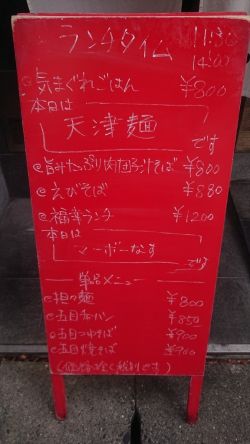 ランチタイム 11:30
14:00
@気まぐれごはん ¥800
本日は
天津麺
です
@旨みたっぷり肉団子汁そば ¥800
@えびそば ¥880
@福幸ランチ ¥1200
本日は
マーボーなす
です
単品メニュー
@担々麺 ¥800
@五目チャーハン ¥850
@五目つゆそば ¥900
@五目焼そば ¥900
(価格は全て税別です)